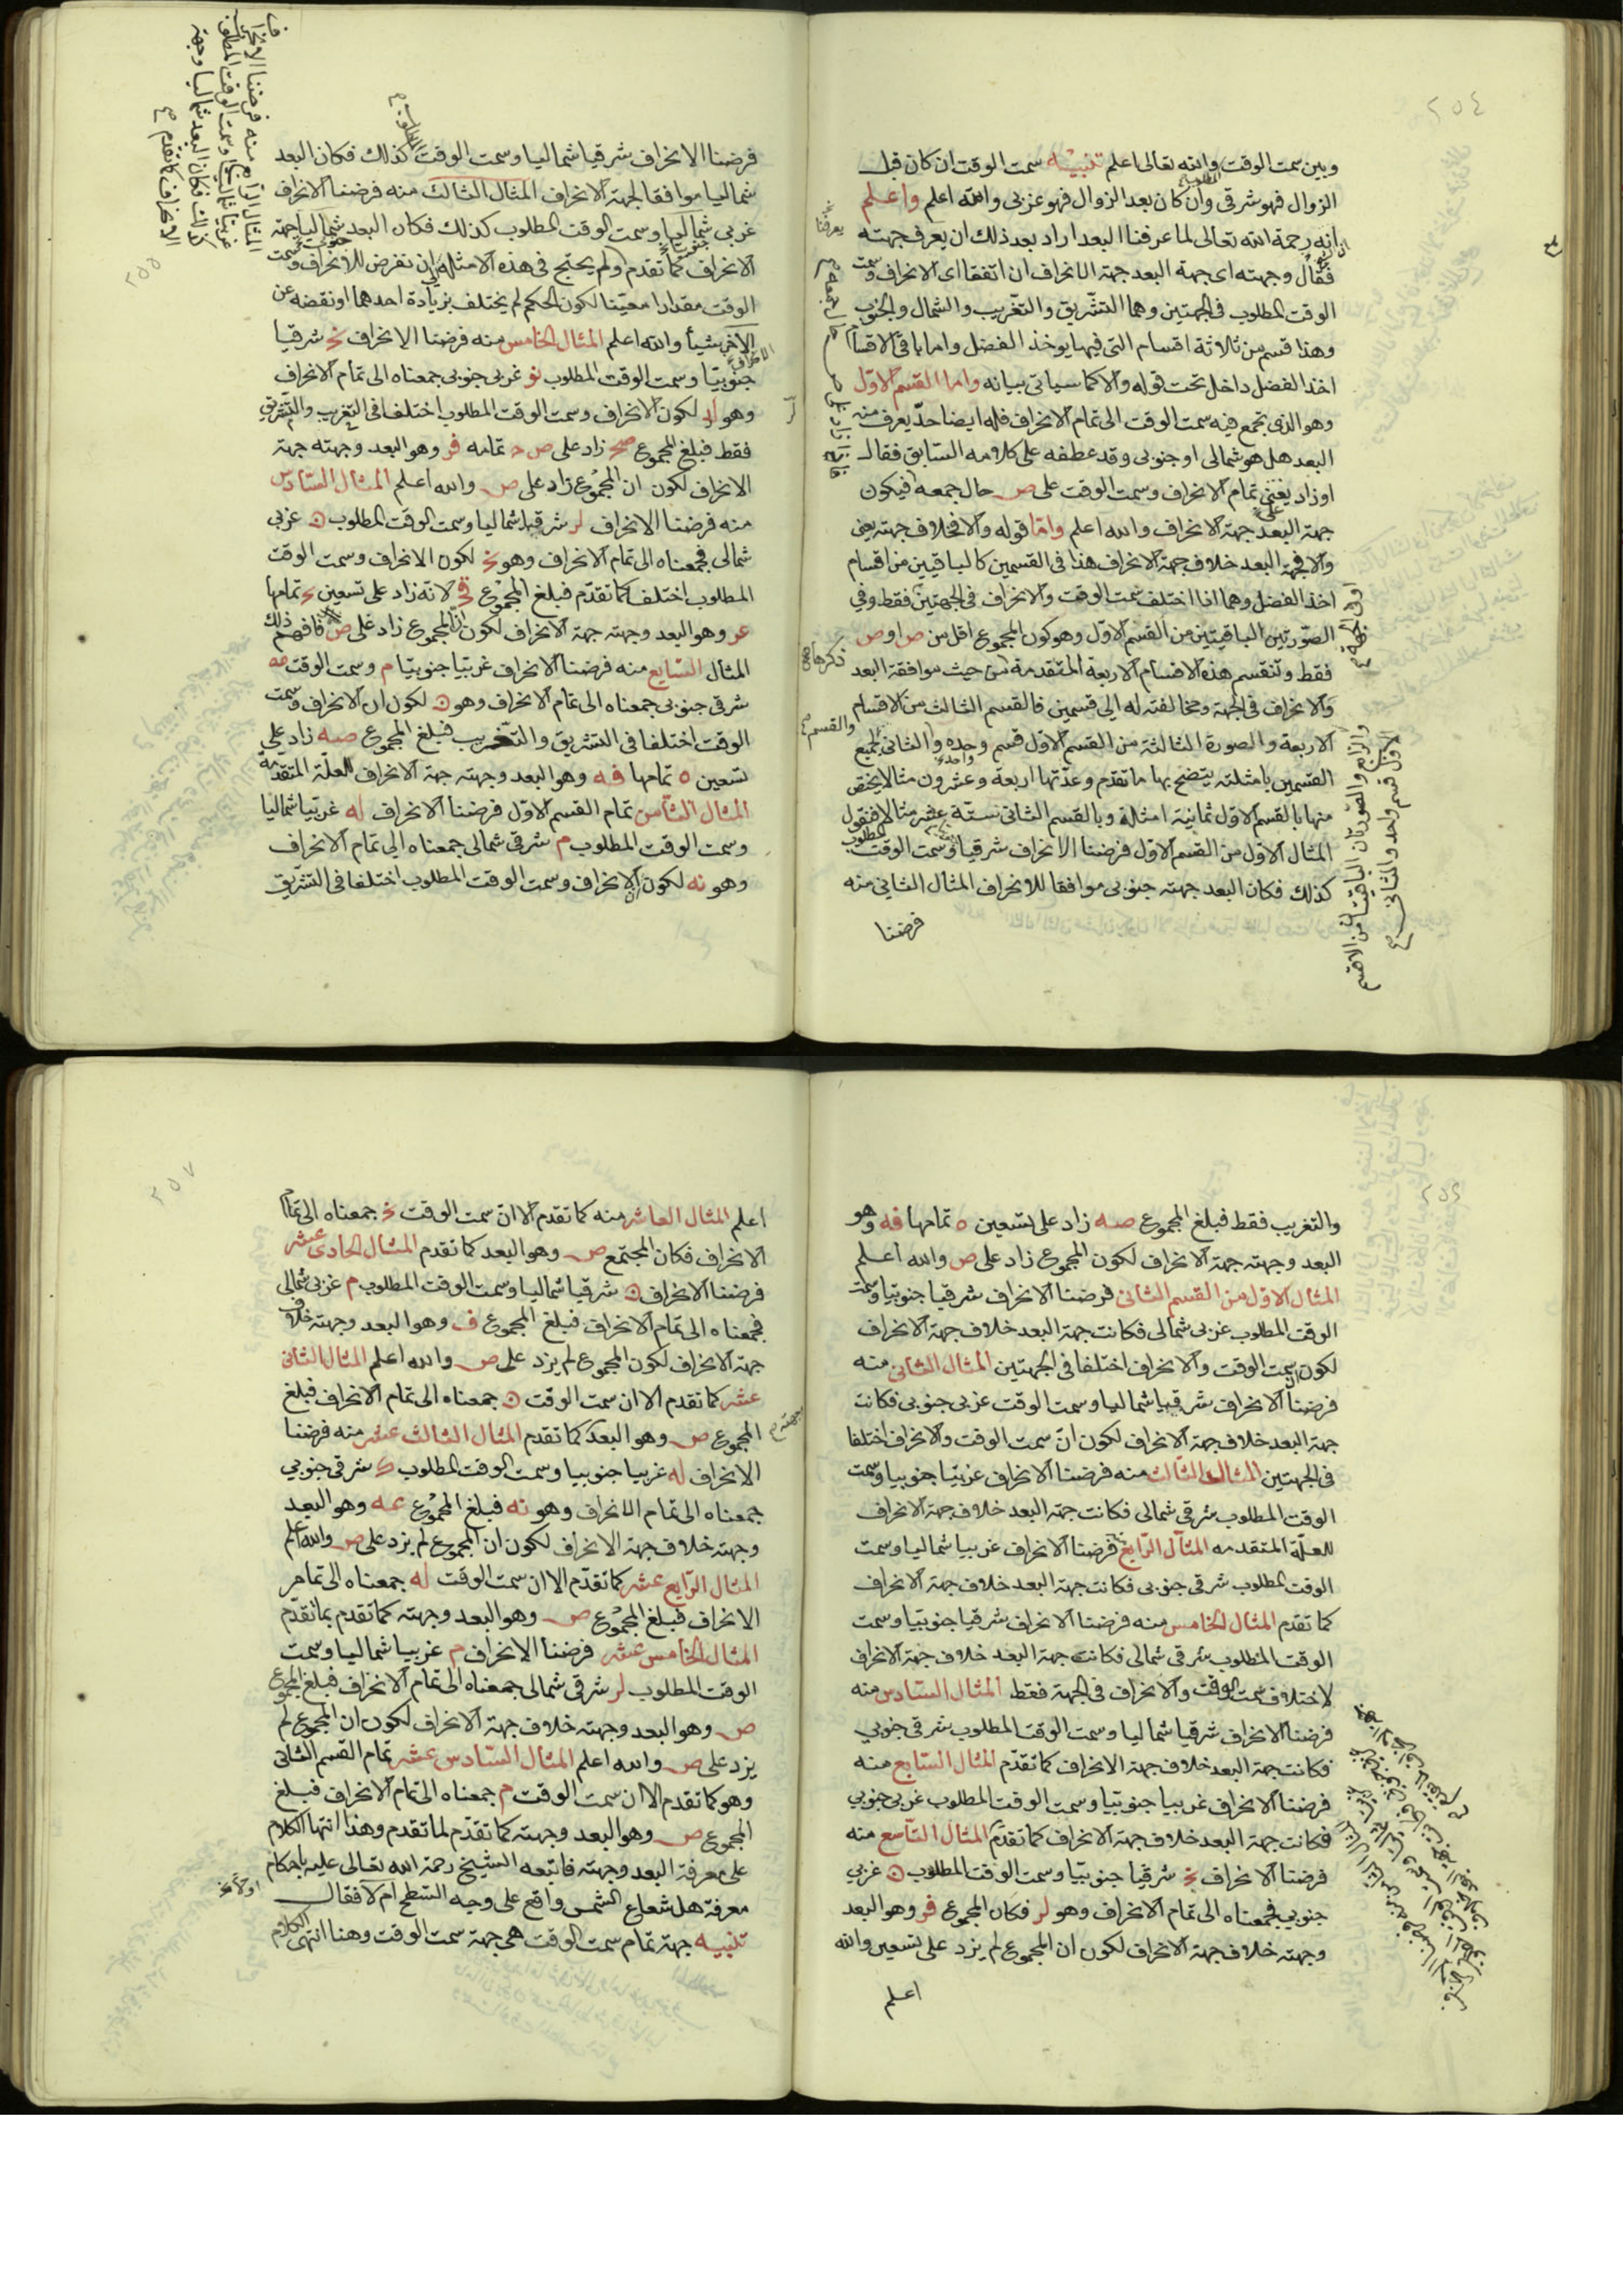 ٢٥٤
وبين سمت الوقت والله تعالى اعلم تنبيه سمت الوقت ان كان قبل
الزوال فهو شرقى وان كان بعد الزوال فهو غربى والله اعلم واعلم
انه رحمة الله تعالى لما عرفنا البعد اراد بعد ذلك ان يعرف جهته
فقال وجهته اى جهة البعد جهة الانحراف ان اتفقا اى الانحراف وسمت
الوقت المطلوب فى الجهتين وهما التشريق والتغريب والشمال والجنوب
وهذا قسم من ثلاثة اقسام التى فيها يوخذ الفضل واما باقى الاقسام
اخذ الفضل داخل تحت قوله والا كما سياتى بيانه واما القسم الاول
وهو الذى تجمع فيه سمت الوقت الى تمام الانحراف فله ايضا حد يعرف منه
البعد هل هو شمالى او جنوبى وقد عطفه على كلامه السابق فقال
او زاد يعنى تمام الانحراف وسمت الوقت على ص حال جمعه فيكون
جهة البعد جهة الانحراف والله اعلم واما قوله والا فخلاف جهته يعنى
والا فجهة البعد خلاف جهة الانحراف هذا فى القسمين كالباقيين من اقسام
اخذ الفضل وهما اذا اختلف سمت الوقت والانحراف فى الجهتين فقط وفى
الصورتين الباقيتين من القسم الاول وهو كون المجموع اقل من ص او ص
فقط وتنقسم هذه الاقسام الاربعة المتقدمة من حيث موافقة البعد
والانحراف فى الجهة ومخالفته له الى قسمين فالقسم الثالث من الاقسام
الاربعة والصورة الثالثة من القسم الاول قسم وحده والثانى لجميع
القسمين بامثلته يتضح بها ما تقدم وعدتها اربعة وعشرون مثالا يختص
منها بالقسم الاول ثمانية امثلة وبالقسم الثانى ستة عشر مثالا فنقول
المثال الاول من القسم الاول فرضنا الانحراف شرقيا وسمت الوقت المطلوب
كذلك فكان البعد جهته جنوبى موافقا للانحراف المثال الثانى منه
فرضنا
٢٥٥
فرضنا الانحراف شرقيا شماليا وسمت الوقت كذلك فكان البعد
شماليا موافقا لجهة الانحراف المثال الثالث منه فرضنا الانحراف
غربى شماليا وسمت الوقت المطلوب كذلك فكان البعد شماليا جهة
الانحراف كما تقدم ولم يحتج فى هذه الامثلة ان نفرض للانحراف وسمت
الوقت مقدارا معينا لكون الحكم لم يختلف بزيادة احدهما او نقصه عن
الاخر شيأ والله اعلم المثال الخامس منه فرضنا الانحراف نح شرقيا
جنوبيا وسمت الوقت المطلوب نو غربى جنوبى جمعناه الى تمام الانحراف
وهو لب لكون الانحراف وسمت الوقت المطلوب اختلفا فى التغريب والتشريق
فقط فبلغ المجموع صح زاد على ص ح تمامه فر وهو البعد وجهته جهة
الانحراف لكون ان المجموع زاد على ص والله اعلم المثال السادس
منه فرضنا الانحراف لر شرقيا شماليا وسمت الوقت المطلوب ن غربى
شمالى فجمعناه الى تمام الانحراف وهو نح لكون الانحراف وسمت الوقت
المطلوب اختلفا كما تقدم فبلغ المجموع قح لانه زاد على تسعين تمامها
عر وهو البعد وجهته جهة الانحراف لكون المجموع زاد على ص فافهم ذلك
المثال السابع منه فرضنا الانحراف غربيا جنوبيا م وسمت الوقت مه
شرقى جنوبى جمعناه الى تمام الانحراف وهو ن لكون ان الانحراف وسمت
الوقت اختلفا فى التشريق والتغريب فبلغ المجموع صه زاد على
تسعين ه تمامها فه وهو البعد وجهته جهة الانحراف للعلة المتقدمة
المثال الثامن تمام القسم الاول فرضنا الانحراف له غربيا شماليا
وسمت الوقت المطلوب م شرقى شمالى جمعناه الى تمام الانحراف
وهو نه لكون الانحراف وسمت الوقت المطلوب اختلفا فى التشريق
والتغريب فقط فبلغ المجموع صه زاد على تسعين ه تمامها فه وهو
البعد وجهته جهة الانحراف لكون المجموع زاد على ص والله اعلم
المثال الاول من القسم الثانى فرضنا الانحراف شرقيا جنوبيا وسمت
الوقت المطلوب غربى شمالى فكانت جهة البعد خلاف جهة الانحراف
لكون سمت الوقت والانحراف اختلفا فى الجهتين المثال الثانى منه
فرضنا الانحراف شرقيا شماليا وسمت الوقت غربى جنوبى فكانت
جهة البعد خلاف جهة الانحراف لكون ان سمت الوقت والانحراف اختلفا
فى الجهتين المثال الثالث منه فرضنا الانحراف غربيا جنوبيا وسمت
الوقت المطلوب شرقى شمالى فكانت جهة البعد خلاف جهة الانحراف
للعلة المتقدمه المثال الرابع فرضنا الانحراف غربيا شماليا وسمت
الوقت المطلوب شرقى جنوبى فكانت جهة البعد خلاف جهة الانحراف
كما تقدم المثال الخامس منه فرضنا الانحراف شرقيا جنوبيا وسمت
الوقت المطلوب شرقى شمالى فكانت جهة البعد خلاف جهة الانحراف
لاختلاف سمت الوقت والانحراف فى الجهة فقط المثال السادس منه
فرضنا الانحراف شرقيا شماليا وسمت الوقت المطلوب شرقى جنوبى
فكانت جهة البعد خلاف جهة الانحراف كما تقدم المثال السابع منه
فرضنا الانحراف غربيا جنوبيا وسمت الوقت المطلوب غربى جنوبى
فكانت جهة البعد خلاف جهة الانحراف كما تقدم المثال التاسع منه
فرضنا الانحراف نح شرقيا جنوبيا وسمت الوقت المطلوب ن غربى
جنوبى فجمعناه الى تمام الانحراف وهو لر فكان المجموع فر وهو البعد
وجهته خلاف جهة الانحراف لكون ان المجموع لم يزد على تسعين والله
اعلم
٢٥٧
اعلم المثال العاشر منه كما تقدم الا ان سمت الوقت نح جمعناه الى تمام
الانحراف فكان المجتمع ص وهو البعد كما تقدم المثال الحادى عشر
فرضنا الانحراف ن شرقيا شماليا وسمت الوقت المطلوب م غربى شمالى
فجمعناه الى تمام الانحراف فبلغ المجموع ف وهو البعد وجهته خلاف
جهة الانحراف لكون المجموع لم يزد على ص والله اعلم المثال الثانى
عشر كما تقدم الا ان سمت الوقت ن جمعناه الى تمام الانحراف فبلغ
المجموع ص وهو البعد كما تقدم المثال الثالث عشر منه فرضنا
الانحراف له غربيا جنوبيا وسمت الوقت المطلوب ك شرقى جنوبى
جمعناه الى تمام الانحراف وهو نه فبلغ المجموع عه وهو البعد
وجهته خلاف جهة الانحراف لكون ان المجموع لم يزد على ص والله اعلم
المثال الرابع عشر كما تقدم الا ان سمت الوقت له جمعناه الى تمام
الانحراف فبلغ المجموع ص وهو البعد وجهته كما تقدم بما تقدم
المثال الخامس عشر فرضنا الانحراف م غربيا شماليا وسمت
الوقت المطلوب لر شرقى شمالى جمعناه الى تمام الانحراف فبلغ المجموع
ص وهو البعد وجهته خلاف جهة الانحراف لكون ان المجموع لم
يزد على ص والله اعلم المثال السادس عشر تمام القسم الثانى
وهو كما تقدم الا ان سمت الوقت م جمعناه الى تمام الانحراف فبلغ
المجموع ص وهو البعد وجهته كما تقدم لما تقدم وهذا انتها الكلام
على معرفة البعد وجهته فاتبعه الشيخ رحمة الله تعالى عليه باحكام
معرفة هل شعاع الشمس واقع على وجه السطح ام لا فقال
تنبيه جهة تمام سمت الوقت هى جهة سمت الوقت وهنا انتهى الكلام